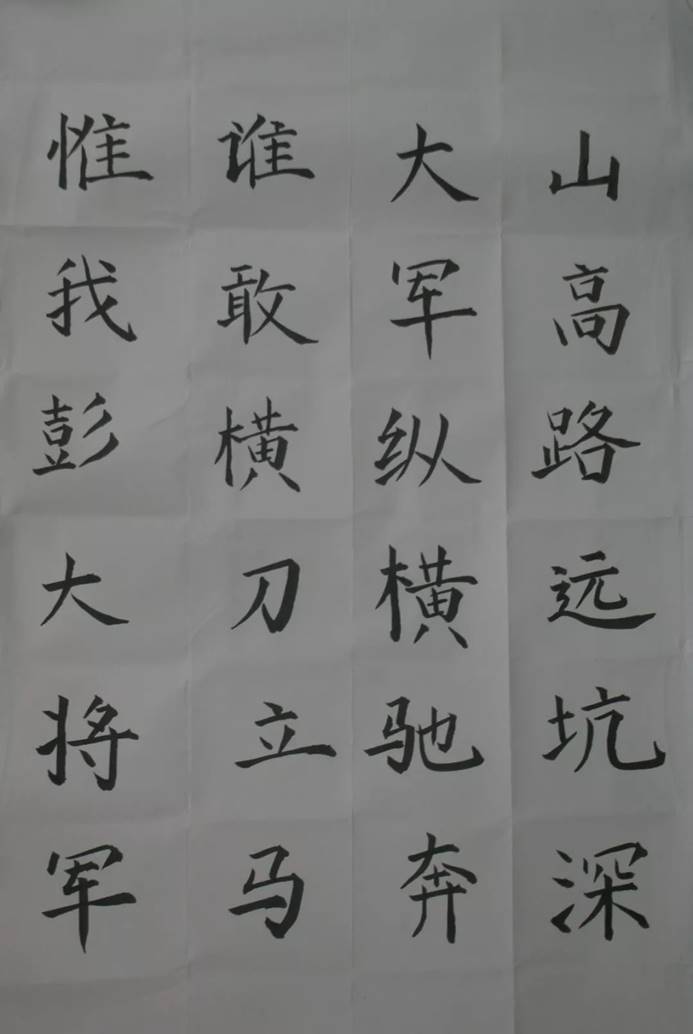 山高路远坑深
大军纵横驰奔
谁敢横刀立马
惟我彭大将军